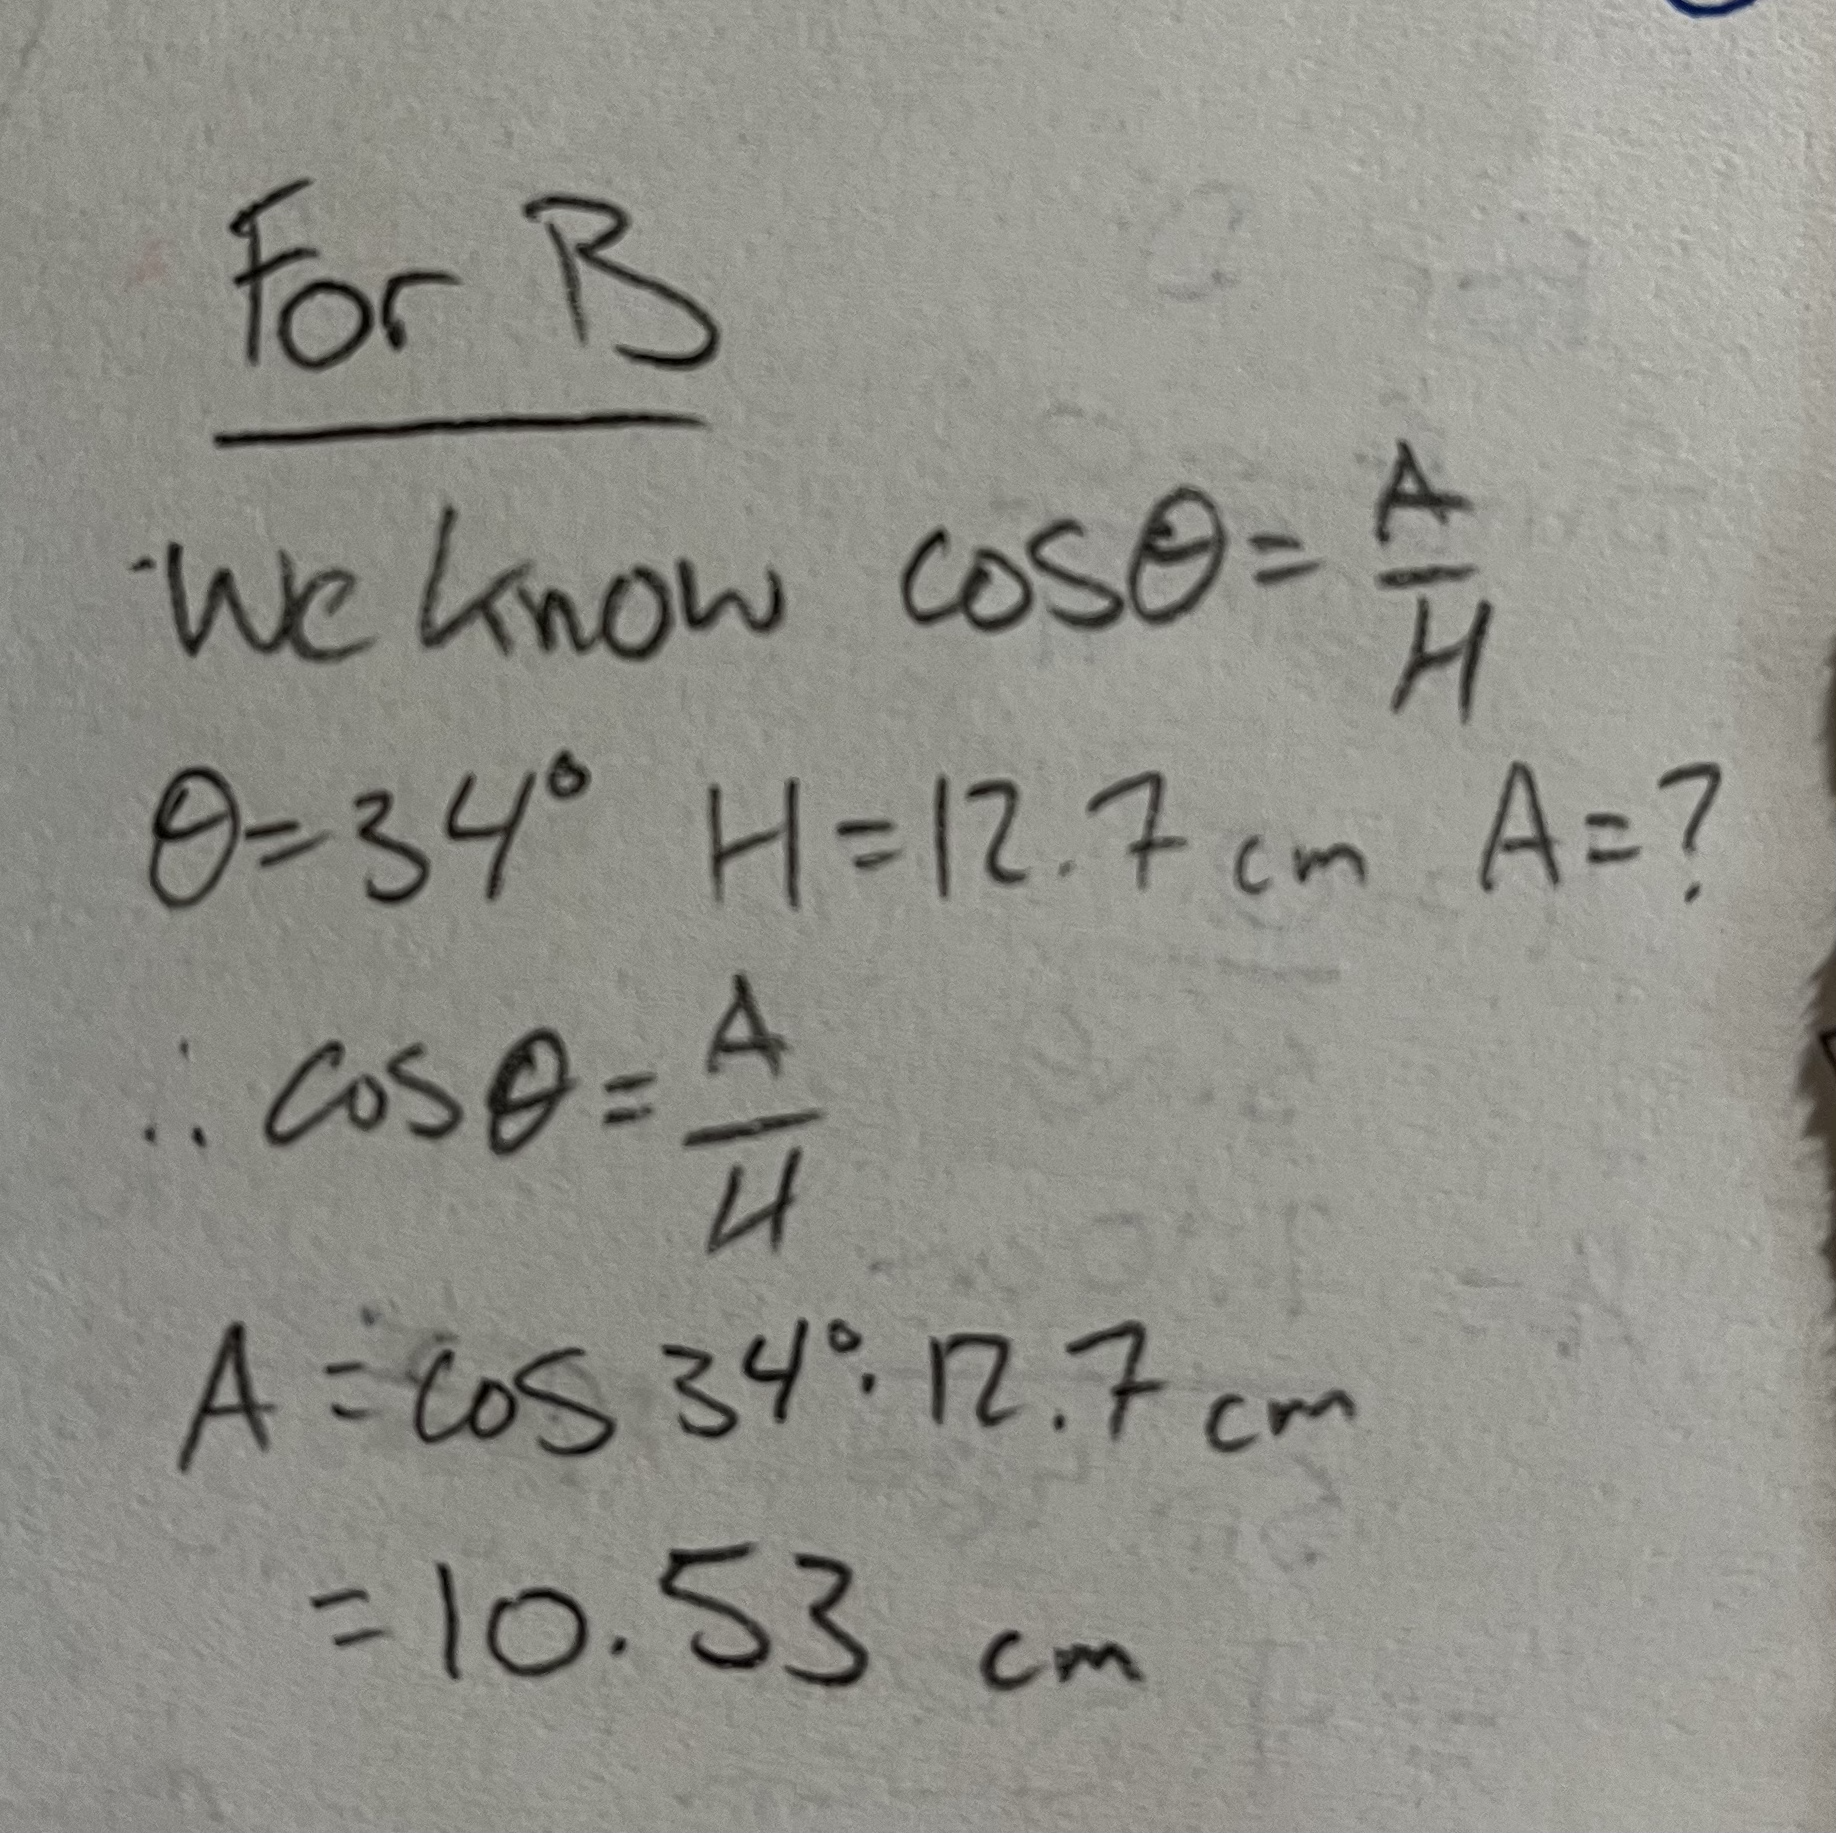 For B
We know cosθ = A/H
θ=34° H=12.7 cm A=?
∴ cosθ = A/H
A = cos 34° · 12.7 cm
= 10.53 cm